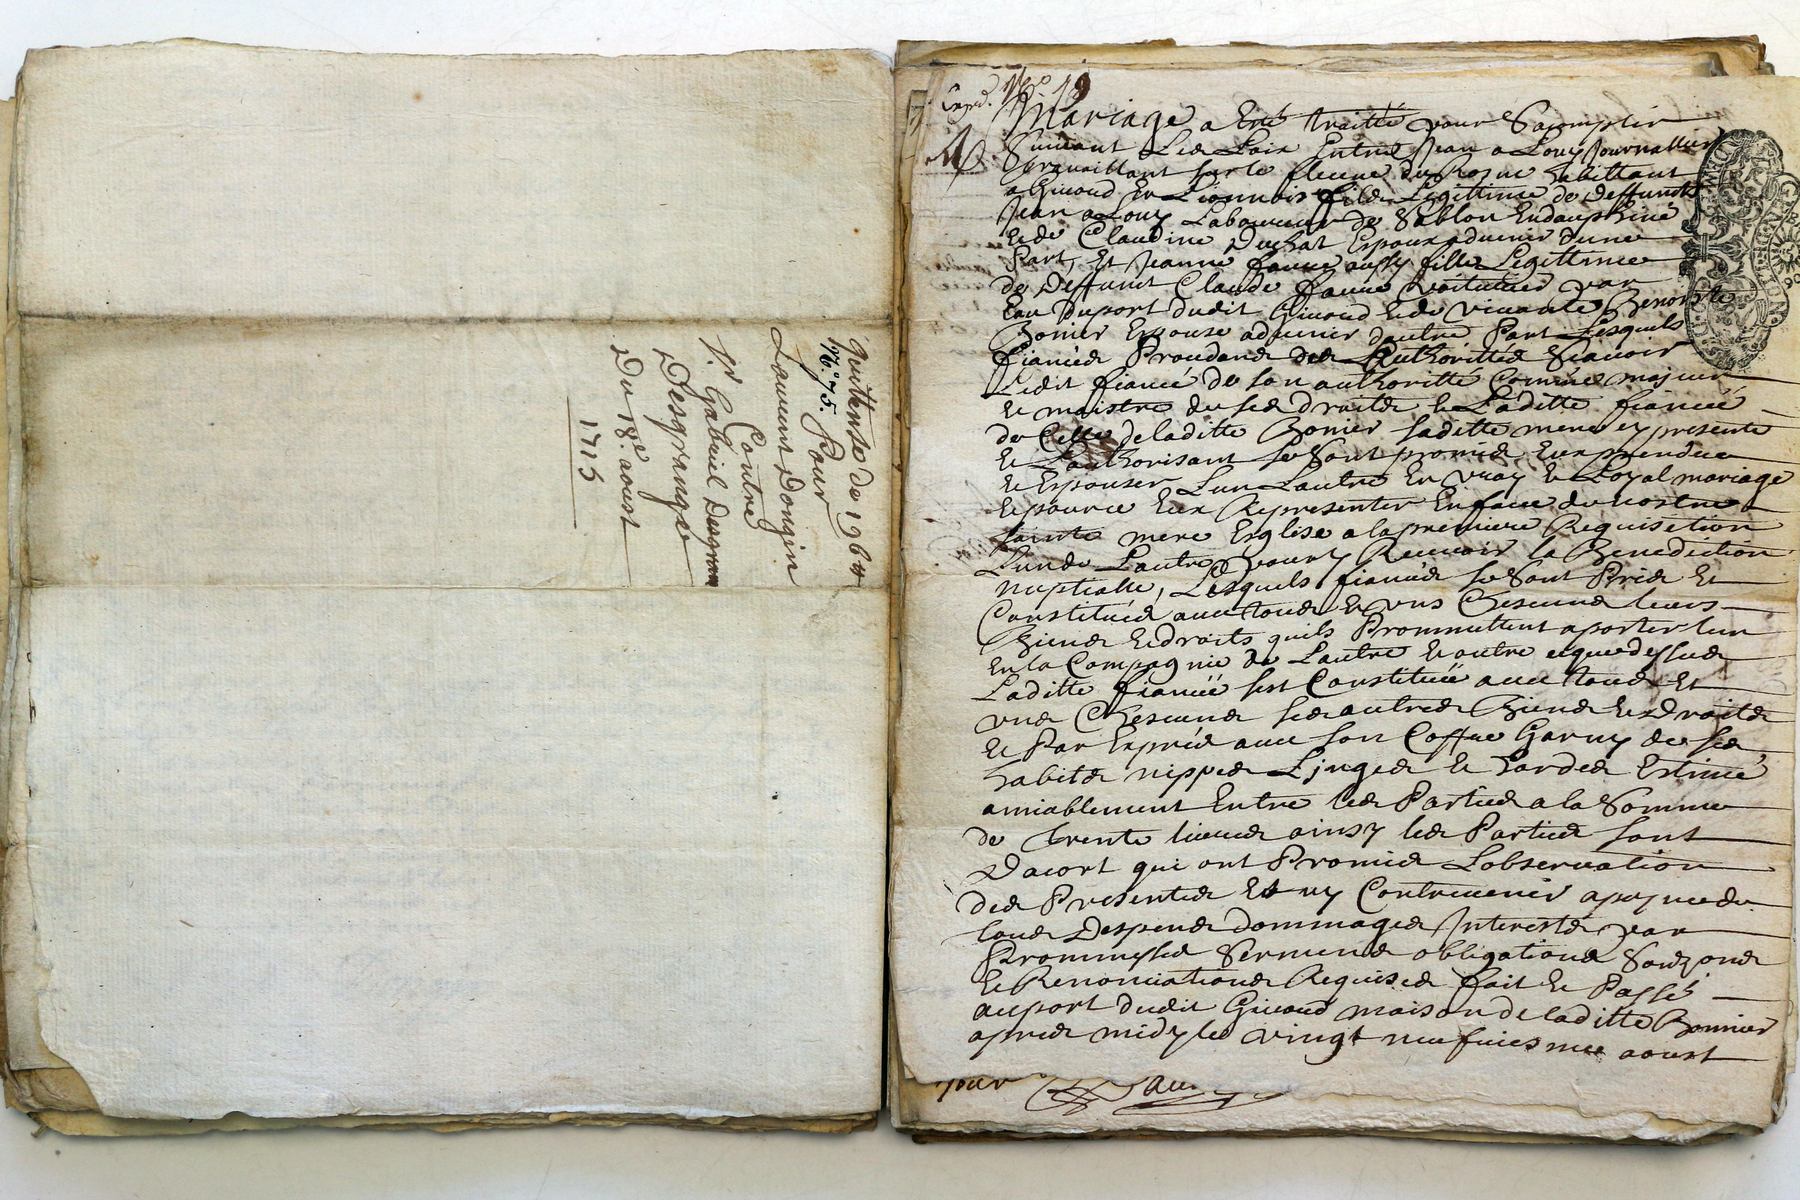 quittense de 196#
N.° 75. Pour
Laurent Dongin
Contre
Sr. Gabriel
Desgranges
Du 18e. aoust
1715
Exped. N.° 19
Mariage a Esté traitté pour Sacomplir
Suivant Les Loix Entre Jean a Louy Journallier
travaillant sur le fleuve du Rosne habittant
a Givord En Lionnois fils Legittime de deffunct
Jean a Louy Laboureur de Sablon Endauphiné
Et de Claudine Duchat Espoux advenir dune
Part, Et Jeanne faure aussy fille Legittime
de Deffunct Claude faure voiturier par
Eau du port dudit Givord Et de vivante Benoiste
Bonier Espouse advenir dautre Part Lesquels
fiancés Procedans des Authorittés Scavoir
Ledit fiancé de son authoritté Comme majeur
Et maistre de ses droits Et Laditte fiancée
de Celle de laditte Bonier sa ditte mere cy presente
Et Lauthorisant se sont promis Eux prendre
Et Espouser Lun Lautre En vray Et Loyal mariage
Et pource Eux Representer En face de nostre
sainte mere Esglise a la premiere Requisition
Lun de Lautre pour y Recevoir la Benediction
nuptialle, Lesquels fiancés se sont Priés Et
Constitués avec tous Et uns Chescuns leurs
Biens Et droits quils Promettent aporter lun
En la Compagnie de Lautre Et outre ce que dessus
Laditte fiancée sest Constituée avec tous Et
uns Chescuns ses autres Biens Et Droits
Et Par Exprés avec son Coffre Garny de ses
habits nippes Linges Et hardes Estimé
amiablement Entre les Parties a la Somme
de trente livres ainsy les Parties sont
Dacort qui ont Promis Lobservation
des Presentes Et ny Contrevenir a peyne de
tous Despens dommages Interests par
Promesses Serments obligations
Et Renonciations Requises fait Et Passé
au port dudit Givord maison de laditte Bonnier
apres midy le vingt neufviesme aoust
Jour